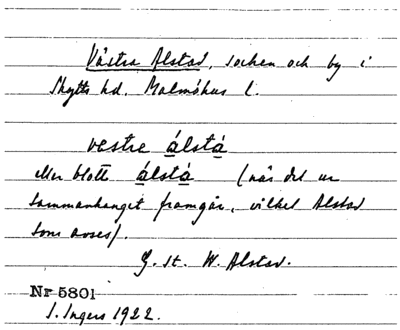 Västra Alstad, socken och by i
Skytts hd. Malmöhus l.
vestre álstá
eller blott álstá (när det ur
sammanhanget framgår, vilket Alstad
som avses).
G. st. W. Alstad.
Nr 5801
I. Ingers 1922.